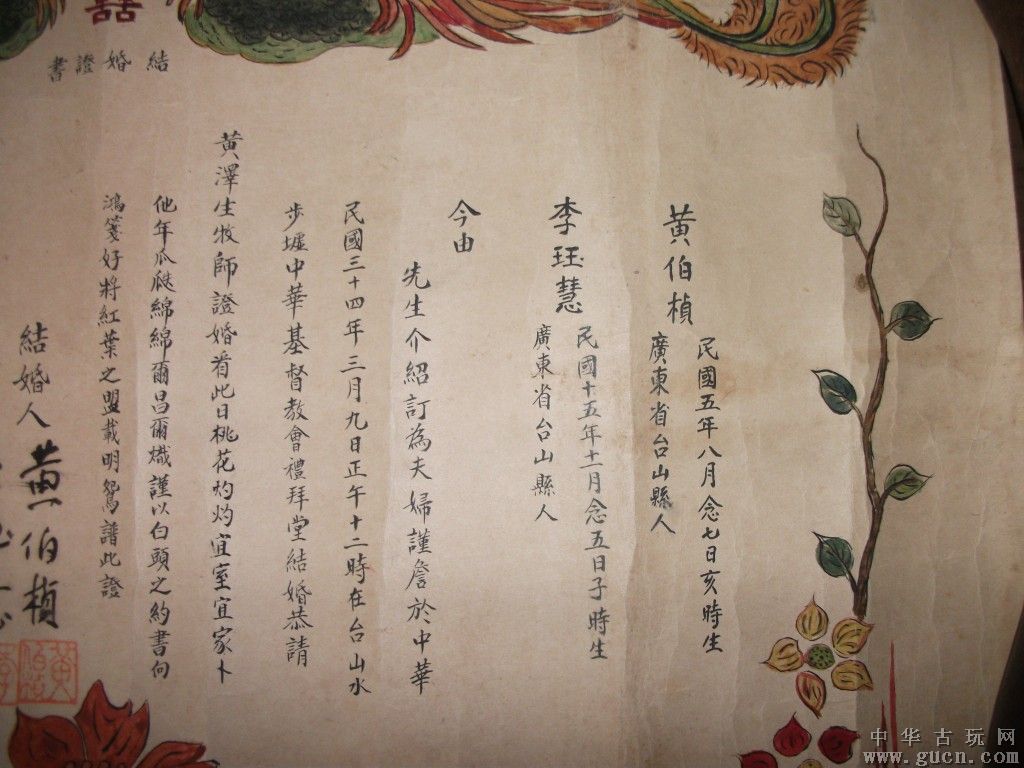 囍
結婚證書
黃伯楨
民國五年八月念七日亥時生
廣東省台山縣人
李珏慧
民國十五年十一月念五日子時生
廣東省台山縣人
今由
先生介紹訂為夫婦謹詹於中華
民國三十四年三月九日正午十二時在台山水
步墟中華基督教會禮拜堂結婚恭請
黃澤生牧師證婚看此日桃花灼灼宜室宜家卜
他年瓜瓞綿綿爾昌爾熾謹以白頭之約書向
鴻箋好將紅葉之盟載明鴛譜此證
結婚人 黃伯楨
中华古玩网
www.gucn.com